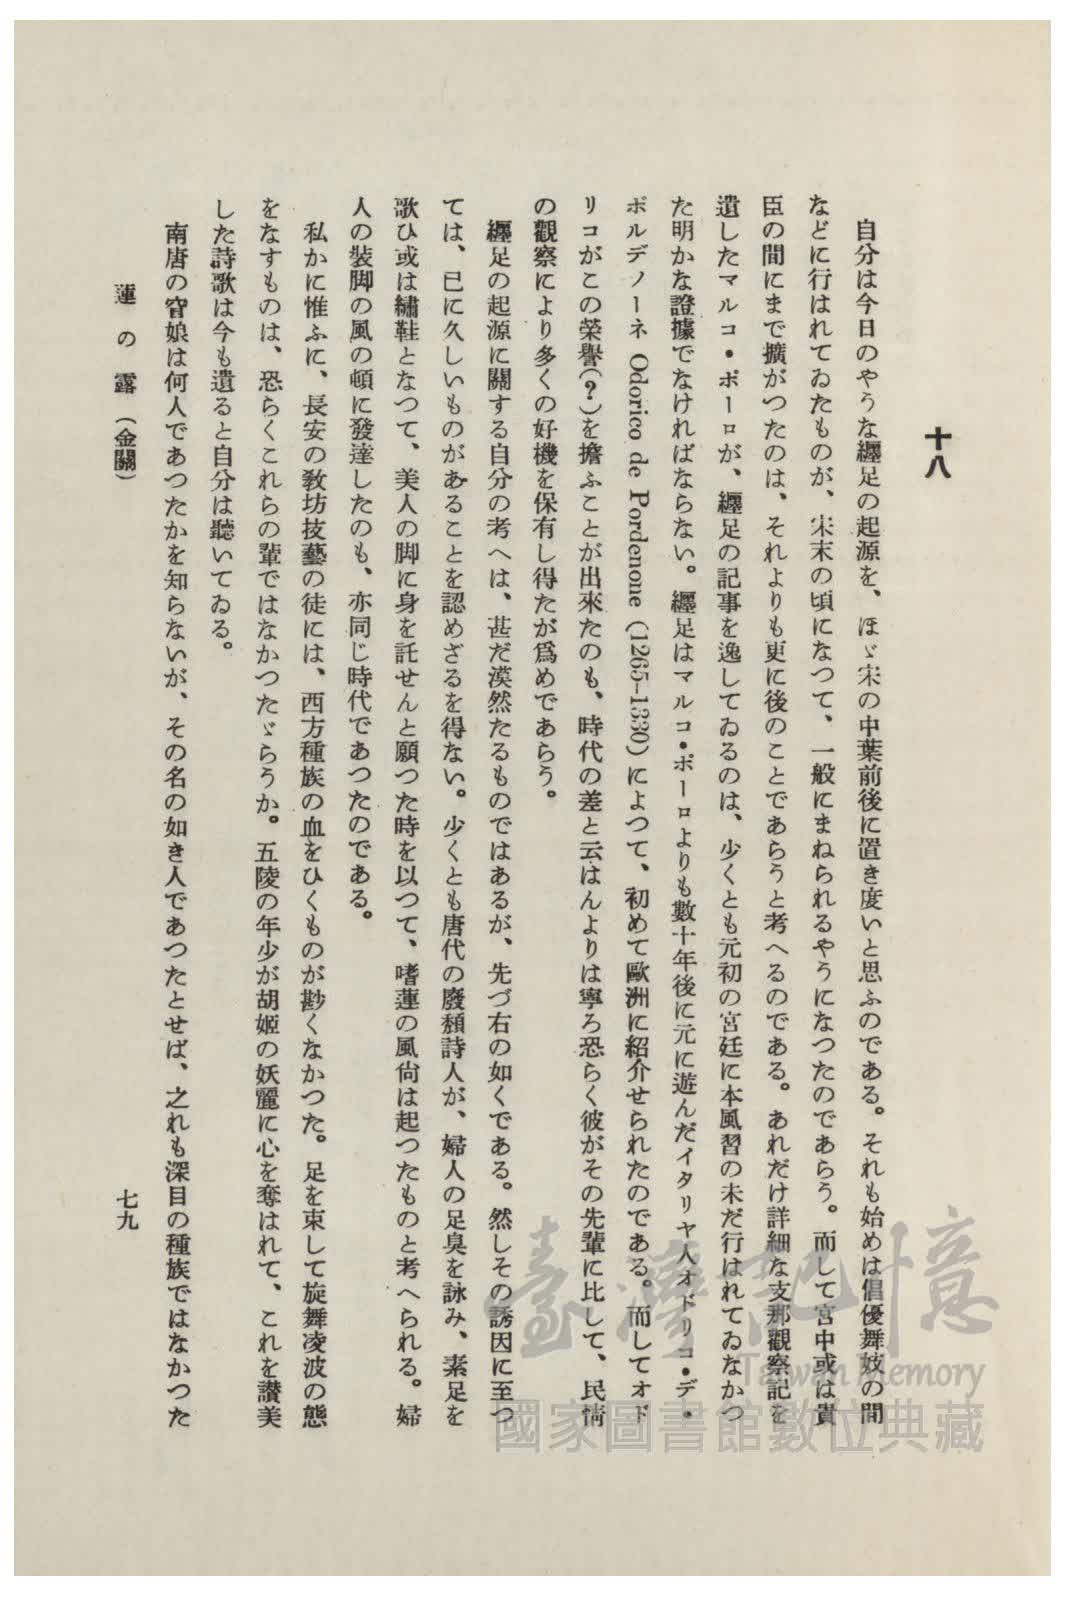 十八
自分は今日のやうな纒足の起源を、ほゞ宋の中葉前後に置き度いと思ふのである。それも始めは倡優舞妓の間
などに行はれてゐたものが、宋末の頃になつて、一般にまねられるやうになつたのであらう。而して宮中或は貴
臣の間にまで擴がつたのは、それよりも更に後のことであらうと考へるのである。あれだけ詳細な支那觀察記を
遺したマルコ・ポーロが、纒足の記事を逸してゐるのは、少くとも元初の宮廷に本風習の未だ行はれてゐなかつ
た明かな證據でなければならない。纒足はマルコ・ポーロよりも數十年後に元に遊んだイタリヤ人オドリコ・デ・
ポルデノーネ Odorico de Pordenone (1265-1330) によつて、初めて歐洲に紹介せられたのである。而してオド
リコがこの榮譽(?)を擔ふことが出來たのも、時代の差と云はんよりは寧ろ恐らく彼がその先輩に比して、民情
の觀察により多くの好機を保有し得たが爲めであらう。
纒足の起源に關する自分の考へは、甚だ漠然たるものではあるが、先づ右の如くである。然しその誘因に至つ
ては、已に久しいものがあることを認めざるを得ない。少くとも唐代の廢頽詩人が、婦人の足臭を詠み、素足を
歌ひ或は繡鞋となつて、美人の脚に身を託せんと願つた時を以つて、嗜蓮の風尙は起つたものと考へられる。婦
人の裝脚の風の頓に發達したのも、亦同じ時代であつたのである。
私かに惟ふに、長安の敎坊技藝の徒には、西方種族の血をひくものが尠くなかつた。足を束して旋舞凌波の態
をなすものは、恐らくこれらの輩ではなかつたゞらうか。五陵の年少が胡姬の妖麗に心を奪はれて、これを讚美
した詩歌は今も遺ると自分は聽いてゐる。
南唐の窅娘は何人であつたかを知らないが、その名の如き人であつたとせば、之れも深目の種族ではなかつた
蓮の露(金關)
七九
臺灣記憶
Taiwan Memory
國家圖書館數位典藏